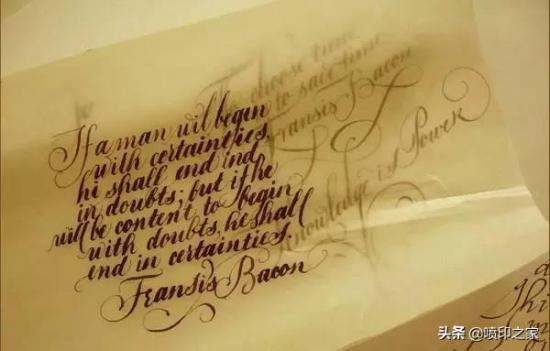 If a man wil begin
with certainties,
hi shall end ind
in doubts; but if he
will be content to begin
with doubts, he shall
end in certainties.
Fransis Bacon
To choose time
is to save time
Fransis Bacon
Knowledge is Power
头条 @喷印之家